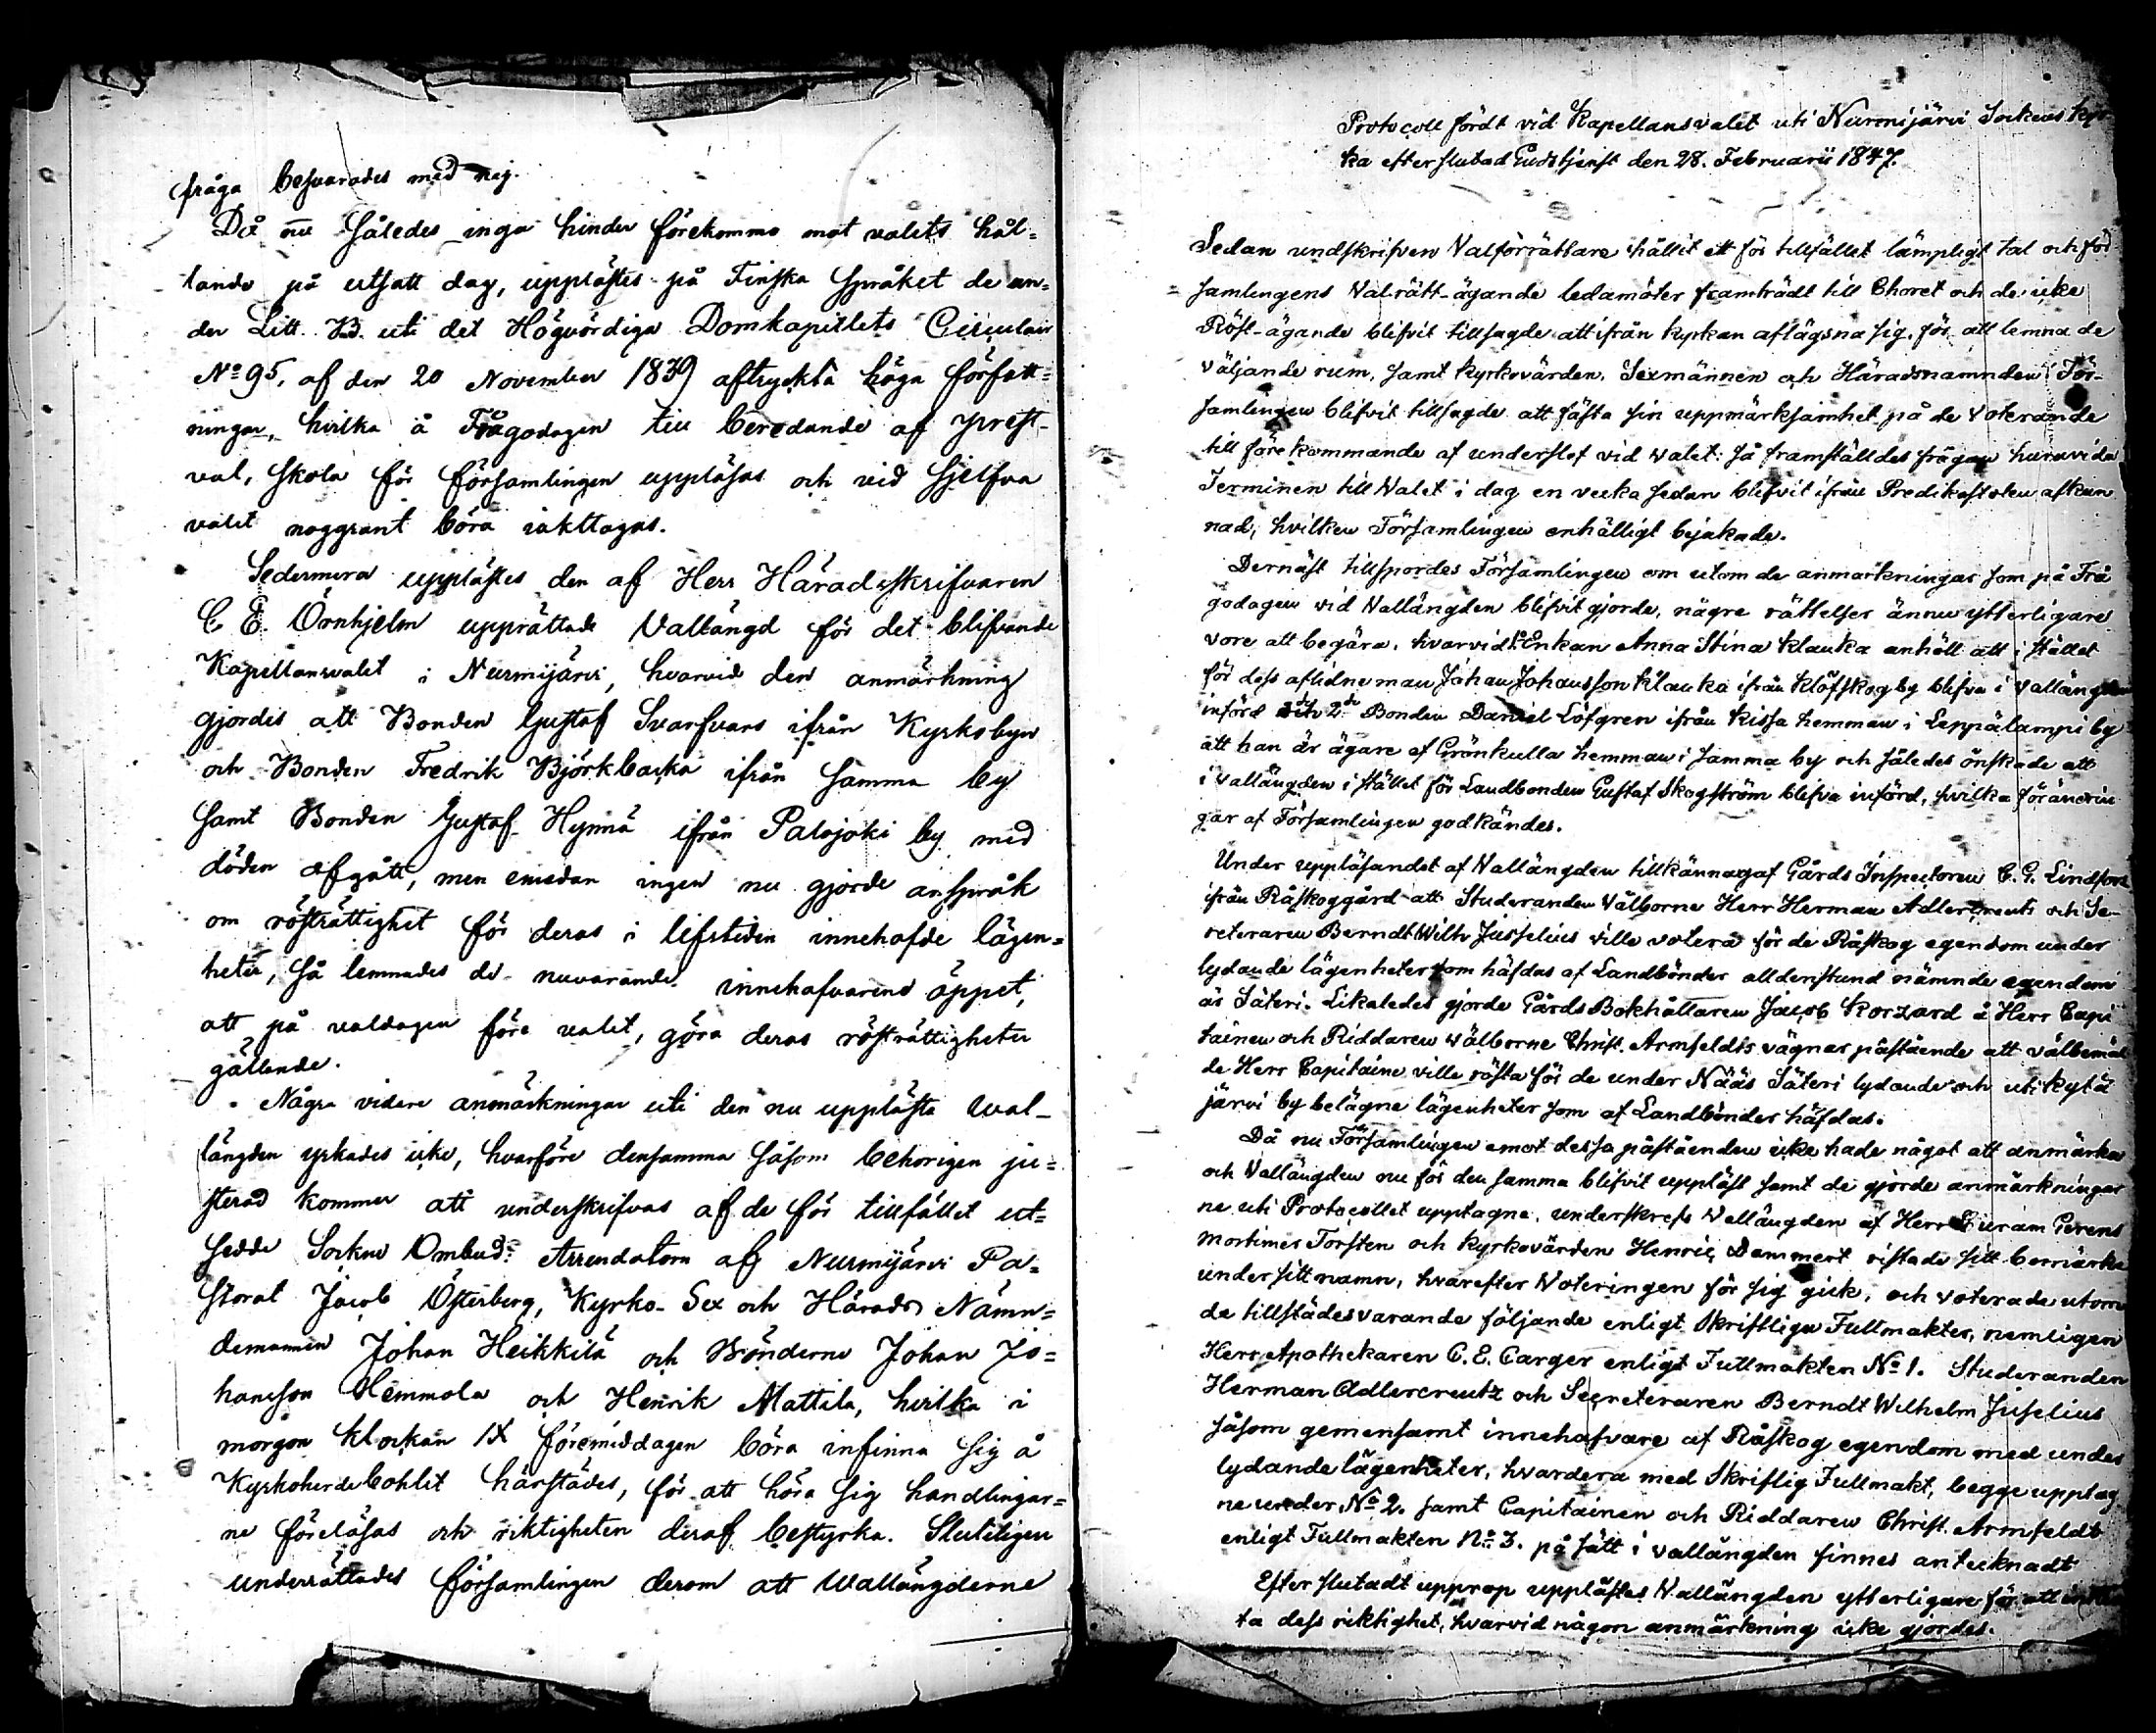 fråga besvarades med nej.
Då nu således inga hinder förekommo mot valets hål-
lande på utsatt dag, upplästes på Finska Språket de un-
der Litt. B. uti det Högvördiga Domkapitlets Circulair
No 95. af den 20 November 1839 aftryckta höga författ-
ningar, hvilka å Frågodagen till beredande af prest-
val, skola för församlingen uppläsas och vid sjelfva
valet noggrant böra iakttagas.
Sedermera upplästes den af Herr Häradsskrifvaren
C. E. Örnhjelm upprättade Vallängd för det blifvande
Kapellansvalet i Nurmijärvi, hvarvid den anmärkning
gjordes att Bonden Gustaf Svarfvars ifrån Kyrkobyn
och Bonden Fredrik Björkbacka ifrån samma by
samt Bonden Gustaf Hynnä ifrån Palojoki by med
döden afgått, men emedan ingen nu gjorde anspråk
om rösträttighet för deras i lifstiden innehafde lägen-
heter, så lemnades de nuvarande innehafvarene öppet,
att på valdagen före valet, göra deras rösträttigheter
gällande.
Några vidare anmärkningar uti den nu upplästa Val-
längden yrkades icke, hvarföre densamma såsom behörigen ju-
sterad kommer att underskrifvas af de för tillfället ut-
sedde Sockne Ombud: Arrendatorn af Nurmijärvi Pa-
storat Jacob Österberg, Kyrko- Sex och Härads Nämn-
demannen Johan Heikkilä och Bönderne Johan Jo-
hansson Hemmola och Henrik Mattila, hvilka i
morgon klockan IX föremiddagen böra infinna sig å
Kyrkoherdebohlet härstädes, för att höra sig handlingar-
ne föreläsas och riktigheten deraf bestyrka. Slutligen
underrättades församlingen derom att Wallängderne
Protocoll fördt vid Kapellansvalet uti Nurmijärvi Sockens kyr
ka efter slutad Gudstjenst den 28. Februarii 1847.
Sedan undskrifven Valförrättare hållit ett för tillfället lämpligt tal och för-
samlingens Valrätt-ägande ledamöter framträdt till Choret och de icke
Röst-ägande blifvit tillsagde att ifrån kyrkan aflägsna sig, för att lemna de
väljande rum, samt kyrkovärden, Sexmännen och Häradsnämnden i För-
samlingen blifvit tillsagde att fästa sin uppmärksamhet på de Voterande
till förekommande af underslef vid valet: så framställdes frågan huruvida
Terminen till Valet i dag en vecka sedan blifvit ifrån Predikostolen afkun
nad, hvilken Församlingen enhälligt bejakade.
Dernäst tillspordes Församlingen om utom de anmärkningar som på Frå
godagen vid Vallängden blifvit gjorde, någre rättelser ännu ytterligare
vore att begära, hvarvid Enkan Anna Stina Klauka anhöll att i stället
för dess aflidne man Johan Johansson Klauka ifrån Klöfskog by blifva i vallängden
införd och 2do Bonden Daniel Löfgren ifrån Kissa hemman i Leppälampi by
att han är ägare af Grönkulla hemman i samma by och således önskade att
i vallängden i stället för Landbonden Gustaf Skogström blifva införd, hvilka förändrin
gar af Församlingen godkändes.
Under uppläsandet af Vallängden tillkännagaf Gårds Inspectoren C. G. Lindfors
ifrån Råskog gård att Studeranden Välborne Herr Herman Adlercreutz och Se-
creteraren Berndt Wilh Juselius ville votera för de Råskog egendom under
lydande lägenheter som häfdas af Landbönder alldenstund nämnde egendom
är Säteri. Likaledes gjorde Gårds Bokhållaren Jacob Korzard å Herr Capi
tainen och Riddaren Välborne Christ. Armfeldts vägnar påstående att välbemäl
de Herr Capitaine ville rösta för de under Nääs Säteri lydande och uti Kytä
järvi by belägne lägenheter som af Landbönder häfdas.
Då nu Församlingen emot dessa påståenden icke hade något att anmärka
och Vallängden nu för densamma blifvit uppläst samt de gjorde anmärkningar
ne uti Protocollet upptagne, underskrefs Vallängden af Herr
Mortimer Torsten och kyrkovärden Henric Dammert ristade sitt bomärke
under sitt namn, hvarefter Voteringen för sig gick, och voterade utom
de tillstädesvarande följande enligt Skriftliga Fullmakter, nemligen
Herr Apothekaren C. E. Carger enligt Fullmakten No 1. Studeranden
Herman Adlercreutz och Secreteraren Berndt Wilhelm Juselius
såsom gemensamt innehafvare af Råskog egendom med under
lydande lägenheter, hvardera med Skriftlig Fullmakt, begge upptag
ne under No 2. samt Capitainen och Riddaren Christ. Armfeldt
enligt Fullmakten No 3. på sätt i vallängden finnes antecknadt
Efter slutadt upprop upplästes Vallängden ytterligare för att
ta dess riktighet, hvarvid någon anmärkning icke gjordes.